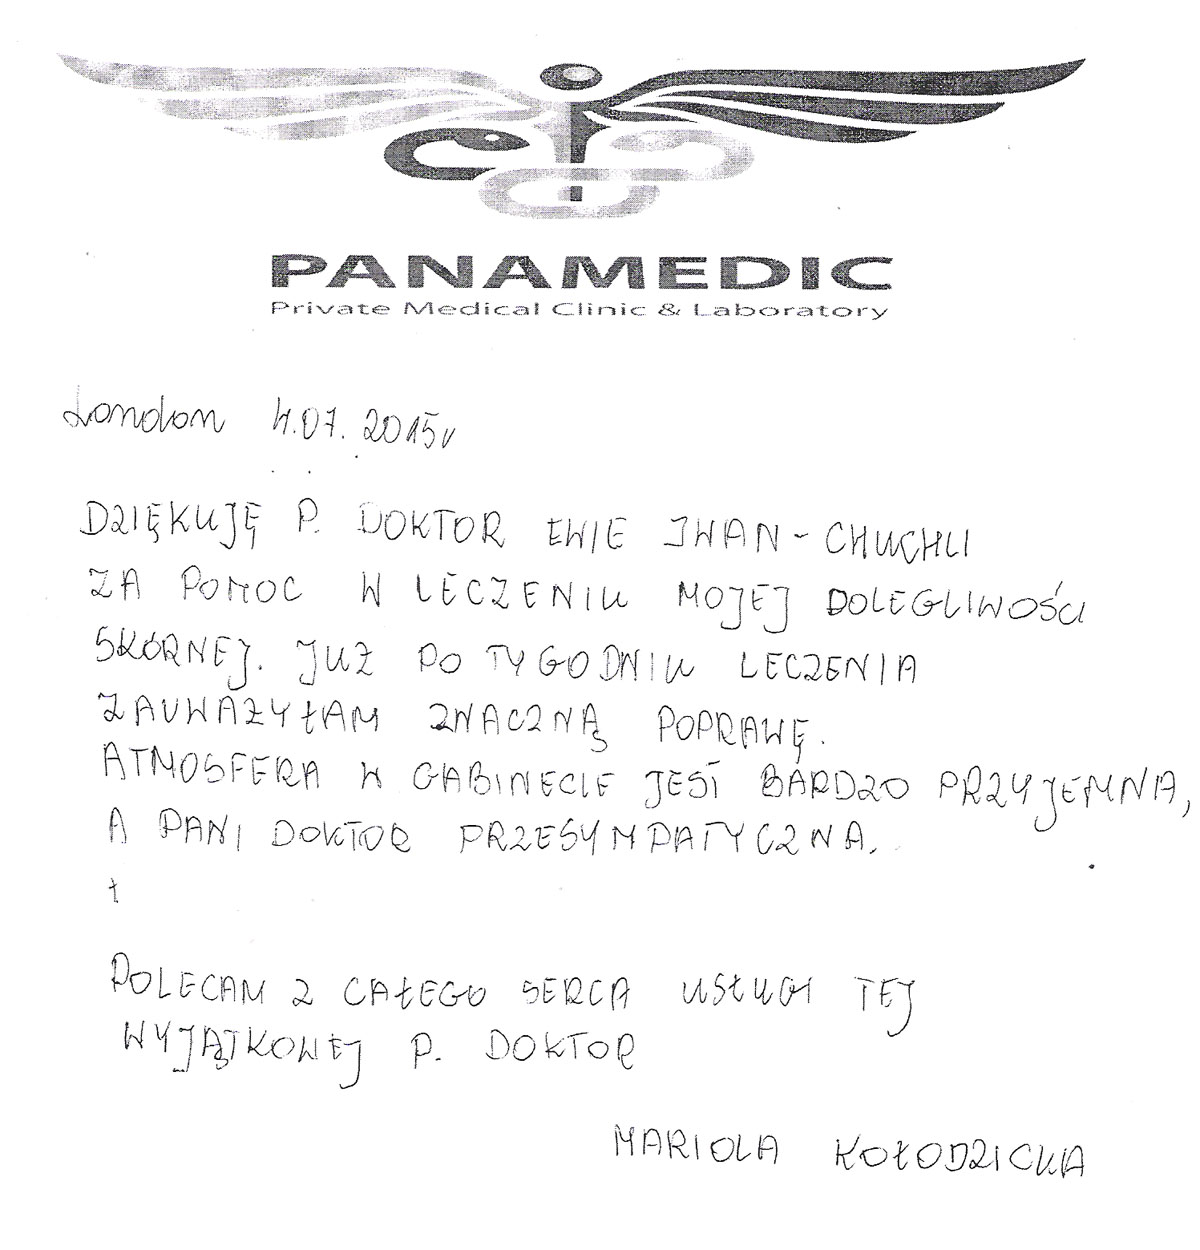 PANAMEDIC
Private Medical Clinic & Laboratory
London 4.07.2015r
DZIĘKUJĘ P. DOKTOR EWIE IWAN-CHUCHLI
ZA POMOC W LECZENIU MOJEJ DOLEGLIWOŚCI
SKÓRNEJ. JUŻ PO TYGODNIU LECZENIA
ZAUWAŻYŁAM ZNACZNĄ POPRAWĘ.
ATMOSFERA W GABINECIE JEST BARDZO PRZYJEMNA,
A PANI DOKTOR PRZESYMPATYCZNA.
POLECAM Z CAŁEGO SERCA USŁUGI TEJ
WYJĄTKOWEJ P. DOKTOR
MARIOLA